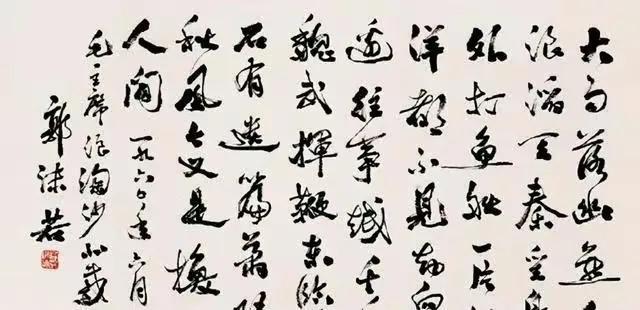 大雨落幽燕
浪滔天秦皇島
外打魚船一片
洋都不見知向
邊往事越千
魏武揮鞭東臨
石有遺篇蕭瑟
秋風今又是換
人間 一九六〇年六月
毛主席浪淘沙北戴
郭沫若